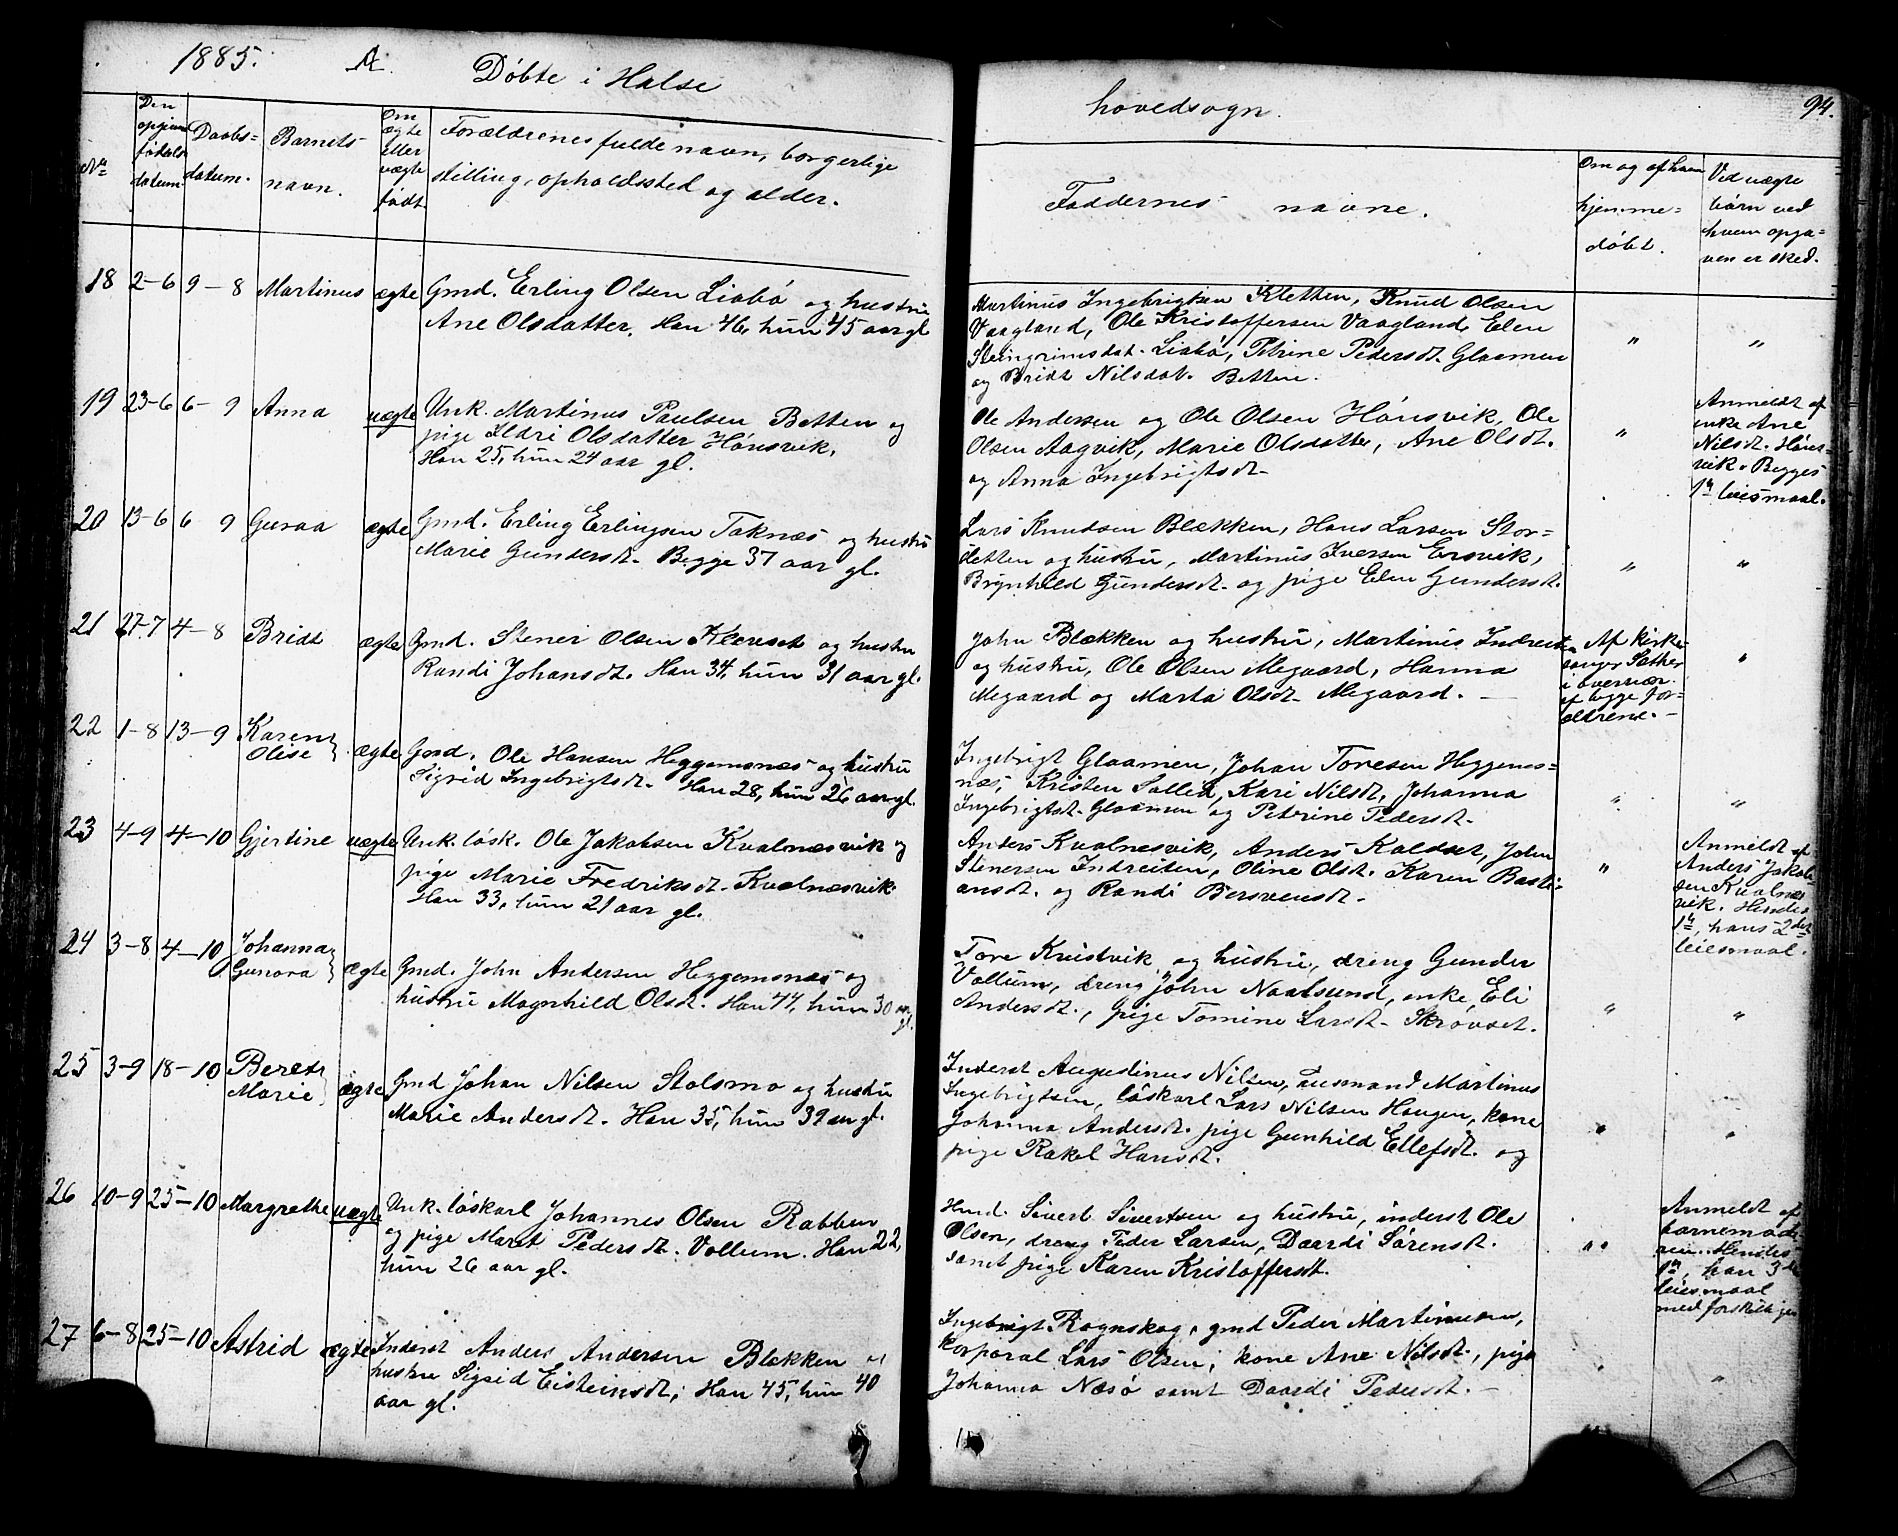 1885. A. Døbte i Halse
hovedsogn. 94.
No
Den
opgivne
fødsels
datum.
Daabs-
datum.
Barnets-
navn.
Om
ægte
eller
uægte
født.
Forældrenes fulde navn, borgerlige
stilling, opholdssted og alder.
Faddernes navne.
Om og af hvem
hjemme-
døbt.
Ved uægte
børn ved
hvem opga-
ven er sked.
18 2-6 9-8 Martinus ægte Gmd. Erling Olsen Liabø og hustru
Ane Olsdatter. Han 46, hun 45 aar gl
Martinus Ingebrigtsen Kletten, Knud Olsen
Vaagland, Ole Kristoffersen Vaagland, Elen
Steingrimsdat. Liabø, Petrine Pedersdt. Glaamen
og Bridt Nilsdat. Betten.
" "
19 23-6 6-9 Anna uægte Unk. Martinus Paulsen Betten og
pige Ildri Olsdatter Hønsvik.
Han 25, hun 24 aar gl.
Ole Andersen og Ole Olsen Hønsvik, Ole
Olsen Aagvik, Marie Olsdatter, Ane Olsdt.
og Anna Ingebrigtsdt.
"
Anmeldt af
enke Ane
Nilsdt. Høns-
vik. Begges
1ste leiesmaal.
20 13-6 6 9 Guraa ægte Gmd. Erling Erlingsen Taknæs og hustru
Marie Gundersdt. Begge 37 aar gl.
Lars Knudsen Blekken, Hans Larsen Stor-
sletten og hustru, Martinus Iversen Ersvik,
Brynhild Gundersdt. og pige Elen Gundersdt.
" "
21 27-7 4-8 Bridt ægte Gmd. Stener Olsen Kleveset og hustru
Randi Johansdt. Han 34, hun 31 aar gl.
John Blekken og hustru, Martinus Indreiten
og hustru, Ole Olsen Megaard, Hanna
Megaard og Marta Olsdt. Megaard.
Af kirke-
sanger Sæther
i overvær.
af begge for-
ældrene.
"
22 1-8 13-9 Karen
Olise ægte Gmd. Ole Hansen Heggemsnæs og hustru
Sigrid Ingebrigtsdt. Han 28, hun 26 aar gl.
Ingebrigt Glaamen, Johan Toresen Heggems-
næs, Kristen Sollid, Kari Nilsdt, Johanna
Ingebrigtsdt. Glaamen og Petrine Pedersdt.
" "
23 4-9 4-10 Gjertine uægte Unk. løsk. Ole Jakobsen Kvalnæsvik og
pige Marie Fredriksdt. Kvalnæsvik.
Han 33, hun 21 aar gl.
Anders Kvalnesvik, Anders Kaldset, John
Stenersen Indreiten, Oline Olsdt. Karen Basti-
ansdt. og Randi Bersvensdt.
"
Anmeldt af
Anders Jakob-
sen Kvalnæs
vik. Hendes
1ste, hans 2det
leiesmaal.
24 3-8 4-10 Johanna
Gurora ægte Gmd. John Andersen Heggemsnæs og
hustru Magnhild Olsdt. Han 44, hun 30 aar
gl.
Tore Kristvik og hustru, dreng Gunder
Vollum, dreng John Naalsund, enke Eli
Andersdt., pige Tomine Larsdt. Skrøvset.
" "
25 3-9 18-10 Beret
Marie ægte Gmd Johan Nilsen Stolsmo og hustru
Marie Andersdt. Han 35, hun 39 aar gl.
Inderst Augustinus Nilsen, husmand Martinus
Ingebrigtsen, løskarl Lars Nilsen Haugen, kone
Johanna Andersdt. pige Gunhild Ellefsdt. og
pige Rakel Hansdt.
" "
26 10-9 25-10 Margrethe uægte Unk. løskarl Johannes Olsen Rabben
og pige Maret Pedersdt. Vollum. Han 22,
hun 26 aar gl.
Hmd. Sivert Sivertsen og hustru, inderst Ole
Olsen, dreng Peder Larsen, Daardi Sørensdt.
samt pige Karen Kristoffersdt.
"
Anmeldt af
barnemode-
ren. Hendes
1ste, han 3die
leiesmaal
med forskellige
27 6-8 25-10 Astrid ægte Inderst Anders Andersen Blekken og
hustru Sigrid Eisteinsdt; Han 45, hun 40
aar gl.
Ingebrigt Rognskog, gmd Peder Martinusen,
korporal Lars Olsen, kone Ane Nilsdt, pige
Johanna Næsø samt Daardi Pedersdt.
" "